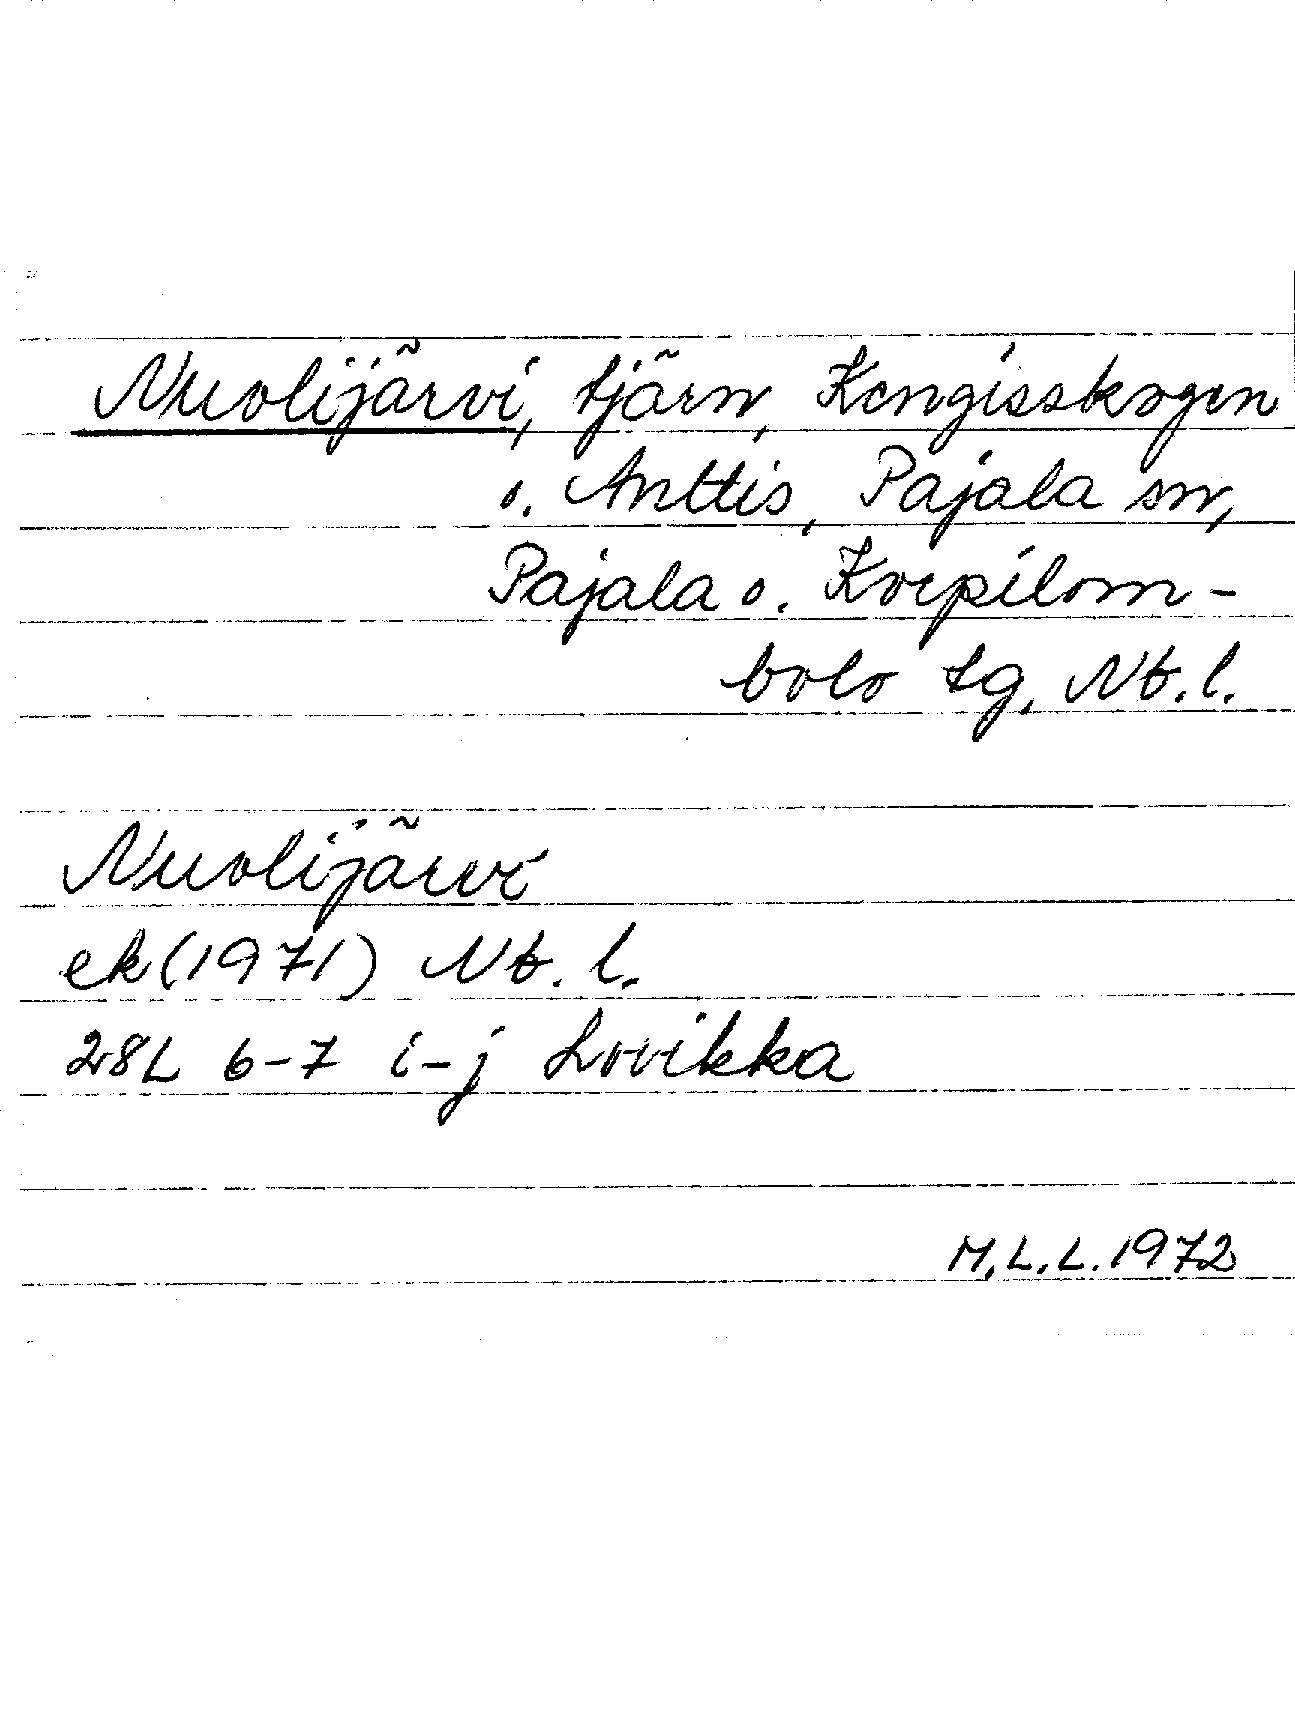 Nuolijärvi, tjärn, Kengisskogen
o. Anttis, Pajala sn,
Pajala o. Korpilom-
bolo tg, Nb.l.
Nuolijärvi
ek(1971) Nb.l.
28L 6-7 i-j Lovikka
M.L.L.1972